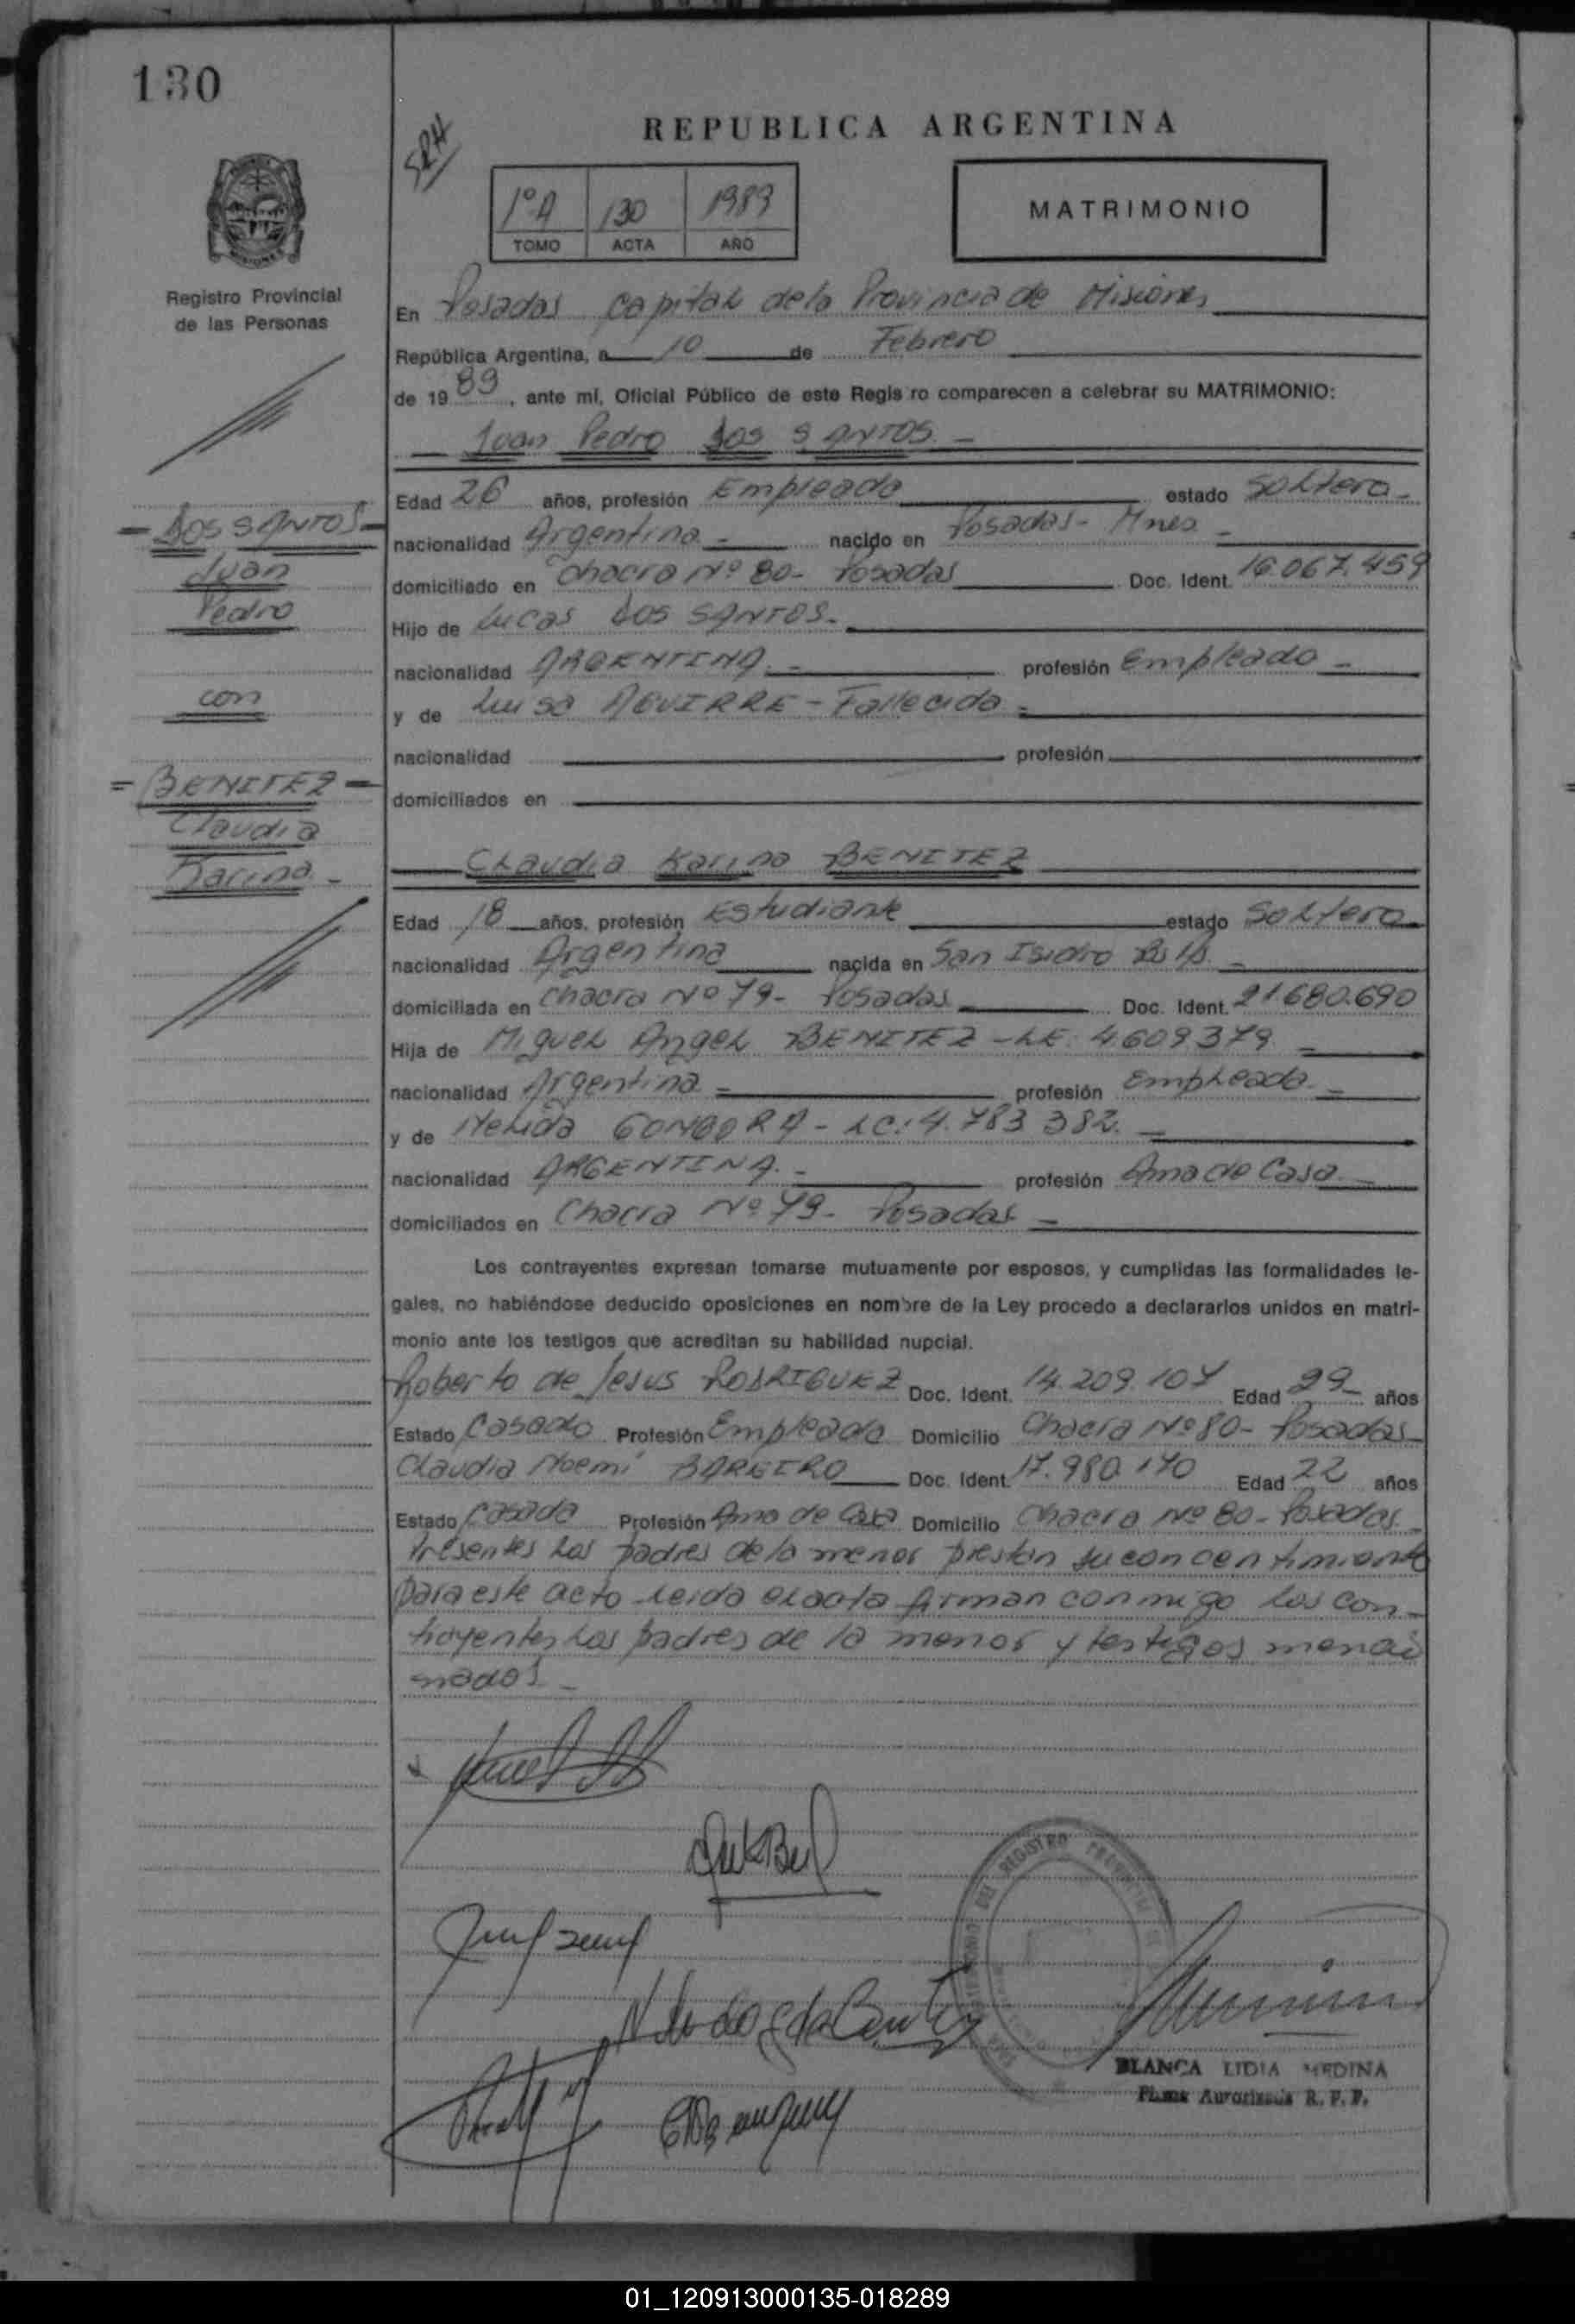 130
REPUBLICA ARGENTINA
1º A 130 1989
TOMO ACTA AÑO
MATRIMONIO
Registro Provincial
de las Personas
En Posadas capital de la Provincia de Misiones
República Argentina, a 10 de Febrero
de 19 89, ante mí, Oficial Público de este Regis ro comparecen a celebrar su MATRIMONIO:
Juan Pedro DOS SANTOS.-
Edad 26 años, profesión Empleado estado Soltero-
nacionalidad Argentina - nacido en Posadas- Mnes -
domiciliado en Chacra Nº 80- Posadas Doc. Ident. 16.067.459
Hijo de Lucas DOS SANTOS.-
nacionalidad ARGENTINA.- profesión Empleado -
y de Luisa AGUIRRE - Fallecida -
nacionalidad profesión
domiciliados en
- DOS SANTOS -
Juan
Pedro
con
= BENITEZ =
Claudia
Karina -
Claudia Karina BENITEZ
Edad 18 años, profesión Estudiante estado Soltera
nacionalidad Argentina nacida en San Isidro Bs As. -
domiciliada en Chacra Nº 79- Posadas Doc. Ident. 21680.690
Hija de Miguel Angel BENITEZ - LE: 4.609.379 -
nacionalidad Argentina - profesión Empleado -
y de Nelida GONGORA - LC: 4.783 382. -
nacionalidad ARGENTINA. - profesión Ama de Casa. -
domiciliados en Chacra Nº 79- Posadas -
Los contrayentes expresan tomarse mutuamente por esposos, y cumplidas las formalidades le-
gales, no habiéndose deducido oposiciones en nombre de la Ley procedo a declararlos unidos en matri-
monio ante los testigos que acreditan su habilidad nupcial.
Roberto de Jesus RODRIGUEZ Doc. Ident. 14.209.107 Edad 29- años
Estado Casado Profesión Empleado Domicilio Chacra Nº 80- Posadas-
Claudia Noemi BAREIRO Doc. Ident. 17.980.170 Edad 22 años
Estado Casada Profesión Ama de Casa Domicilio Chacra Nº 80- Posadas-
Presentes los padres de la menor prestan su concentimiento
para este acto leida el acta firman conmigo los con-
trayentes los padres de la menor y testigos mencio
nados -
BLANCA LIDIA MEDINA
Firma Autorizada R. P. P.
01_120913000135-018289